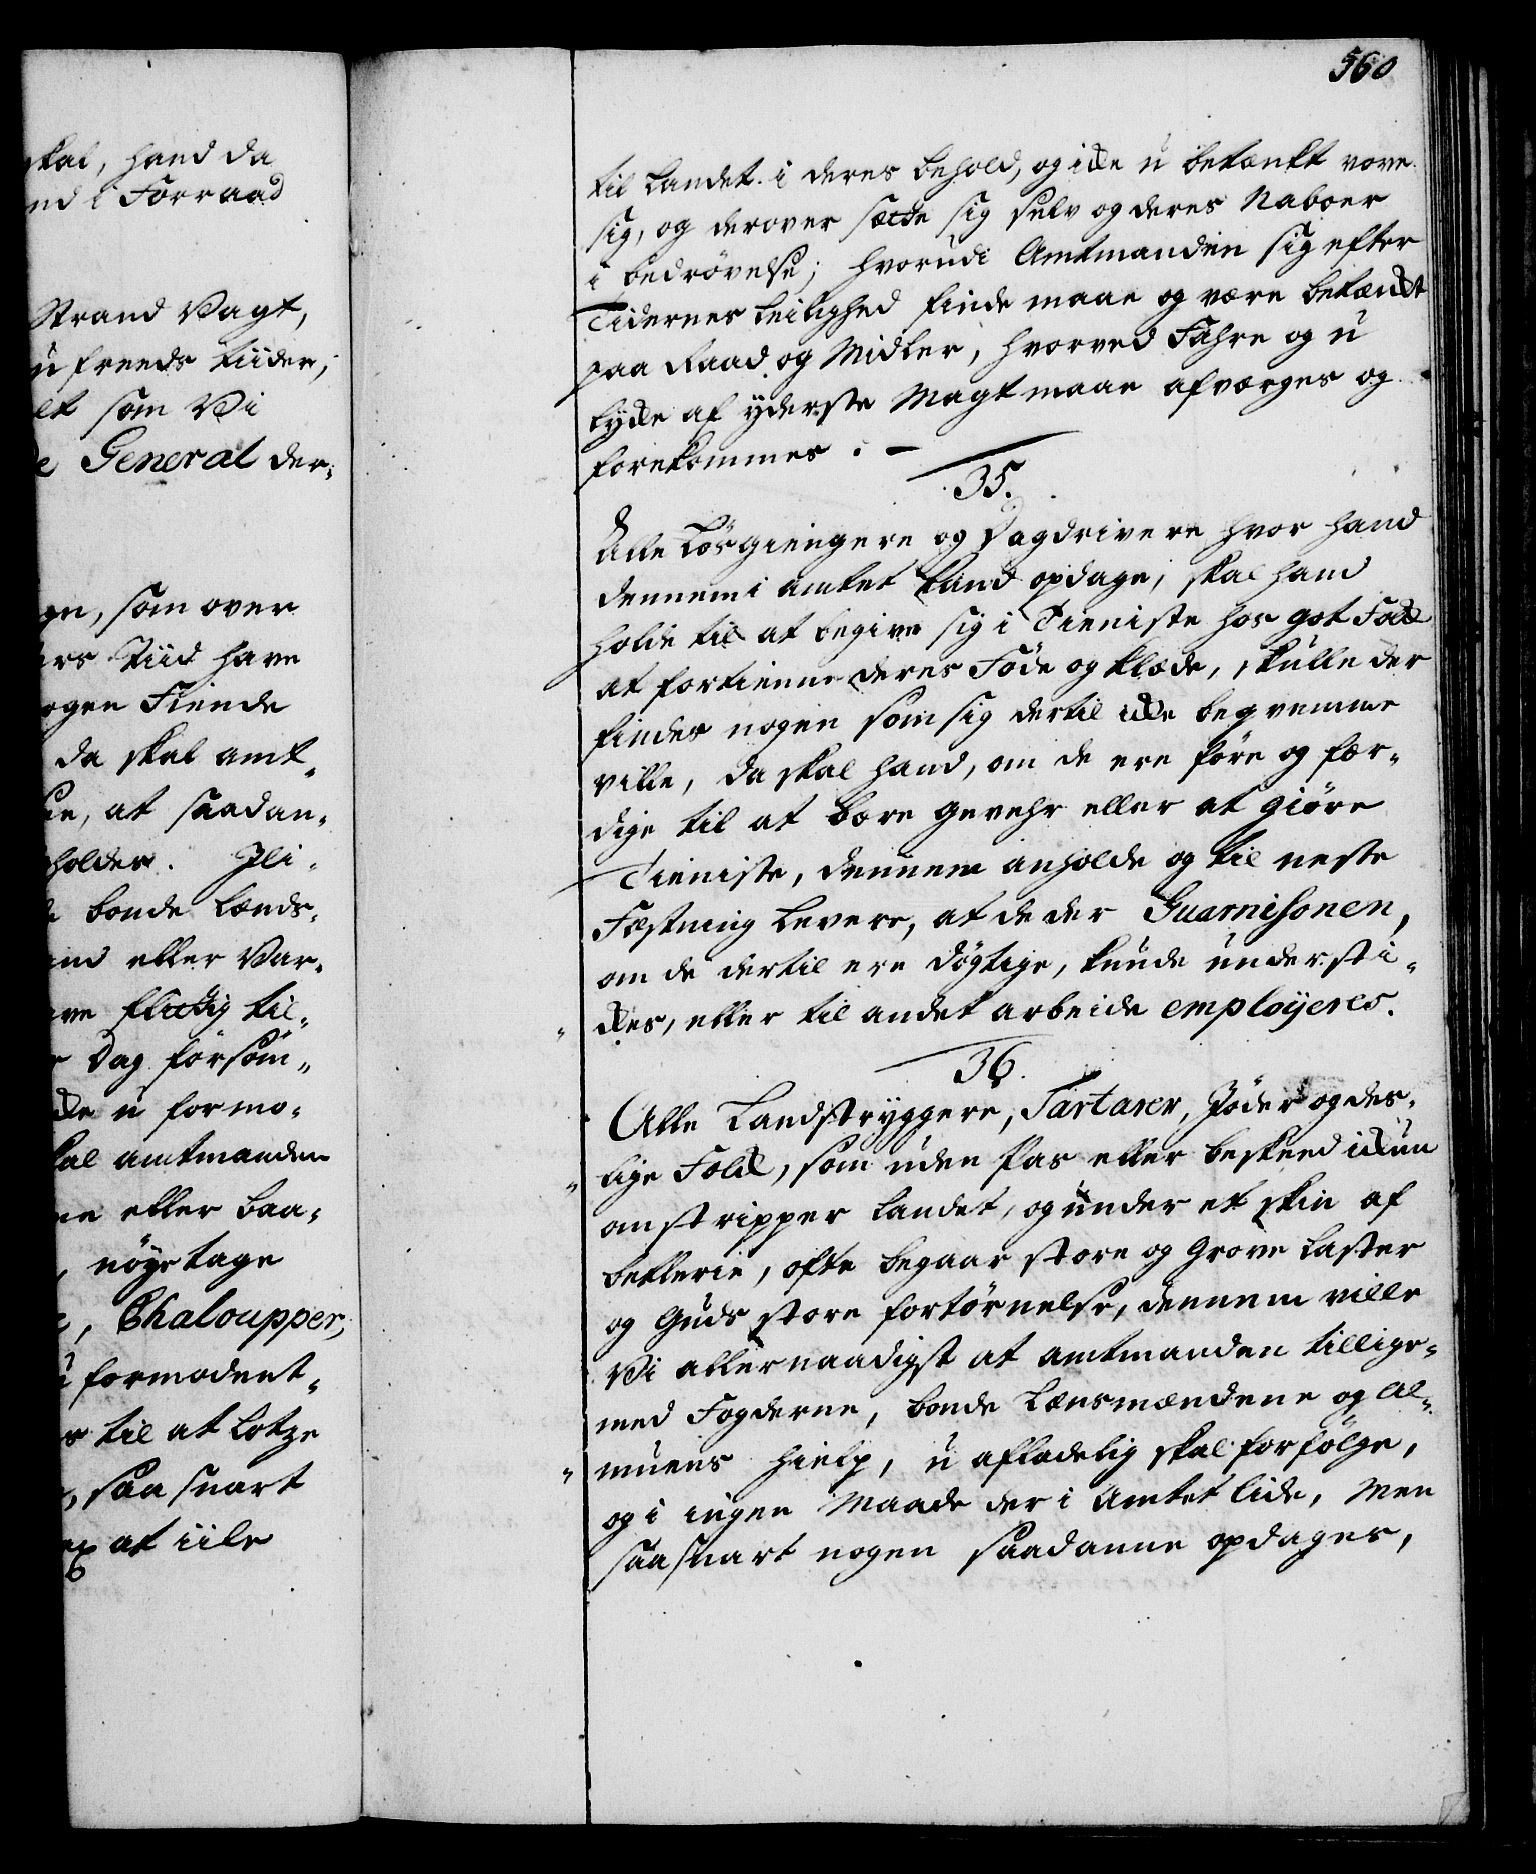 skal, hand da
nd i Forraad
Strand Vagt,
ufreeds tiider,
lt som Vi
e General der¬
gen, som over
ers Tiid have
ogen Fiende
da skal amt¬
at saadan¬
holdes. Ili¬
bonde Lænds¬
ind eller Var¬
ve flittig til¬
Dag forsøm¬
kke u formo¬
kal amtmanden
ne eller baa¬
nøye tage
Chaloupper,
u formodent¬
s til at Lotze
saa snart
at iile
560
til Landet i deres behold, og icke u betænkt vove
sig, og derover sætte sig selv og deres Naboer
i bedrøvelse; hvorudi Amtmanden sig efter
Tidernes Leilighed finde maae og være betænckt
paa Raad og Midler, hvorved Fahre og u
lycke af yderste Magt maae afværges og
forekommes. –
35.
Alle Løsgiengere og Dagdrivere hvor hand
dennem i amtet kand opdage, skal hand
holde til at begive sig i Tieniste hos got Folck
at fortienne deres Føde og klæde, skulle der
findes nogen som sig dertil icke beqvemme
ville, da skal hand, om de ere føre og fær¬
dige til at bære gevehr eller at giøre
Tieniste, dennem anholde og til neste
Fæstning levere, at de der Guarnisonen,
om de dertil ere døgtige, kunde understi¬
ckes, eller til andet arbeide employeres.
36.
Alle Landstryggere, Tartarer, Jøder og des¬
lige Folck, som uden Pas eller beskeed ickun
omstripper Landet, og under et skin af
betlerie, ofte begaar store og grove Laster
og Guds store fortørnelse, dennem ville
Vi allernaadigst at amtmanden tillige¬
med Fogderne, bonde Lænsmændene og al¬
muens hielp, u afladelig skal forfølge,
og i ingen Maade der i Amtet lide, Men
saasnart nogen saadanne opdages,